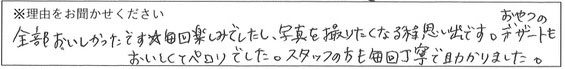 ※理由をお聞かせください
全部おいしかったです☆毎回楽しみでしたし、写真を撮りたくなる程思い出です。おやつのデザートも
おいしくてペロリでした。スタッフの方も毎回丁寧で助かりました。